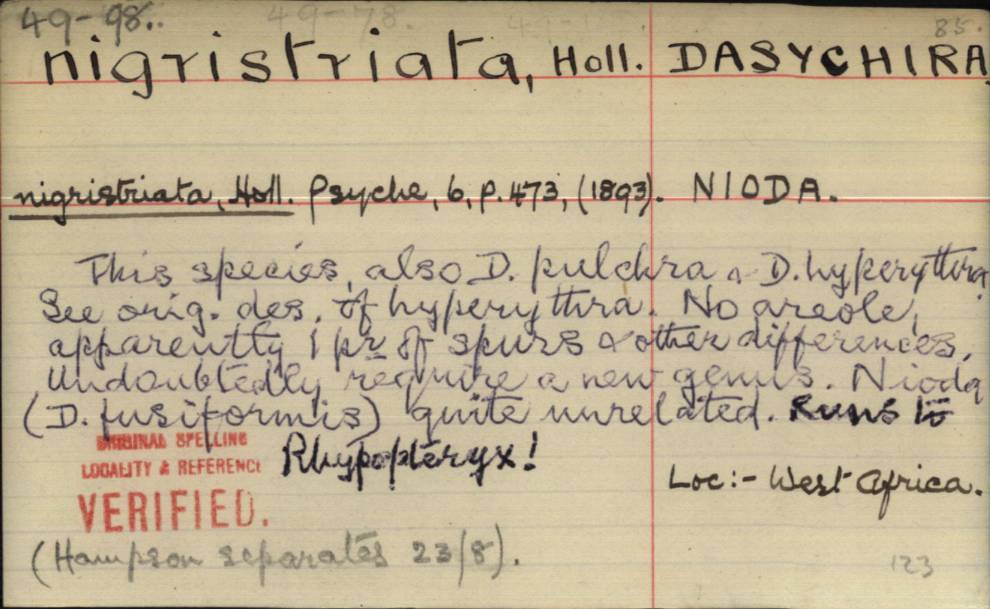 49-98..
85.
nigristriata, Holl. DASYCHIRA
nigristriata, Holl. Psyche, 6, p. 473, (1893). NIODA.
This species, also D. pulchra & D. hyperythra
See orig. des. of hyperythra. No areole,
apparently 1 pr of spurs & other differences.
Undoubtedly require a new genus. Nioda
(D. fusiformis) quite unrelated. Runs to
Rhypopteryx!
ORIGINAL SPELLING
LOCALITY & REFERENCE
VERIFIED.
Loc:- West Africa.
(Hampson separates 23/8).
123